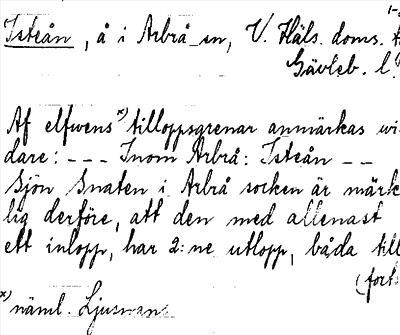 Isteån, å i Arbrå sn, V. Häls. doms.
Gävleb. l.
Af elfwens x) tilloppsgrenar anmärkas wi-
dare: --- Inom Arbrå: Isteån --
Sjön Snaten i Arbrå socken är märk-
lig derföre, att den med allenast
ett inlopp, har 2:ne utlopp, båda till
(forts
x) näml. Ljusnans